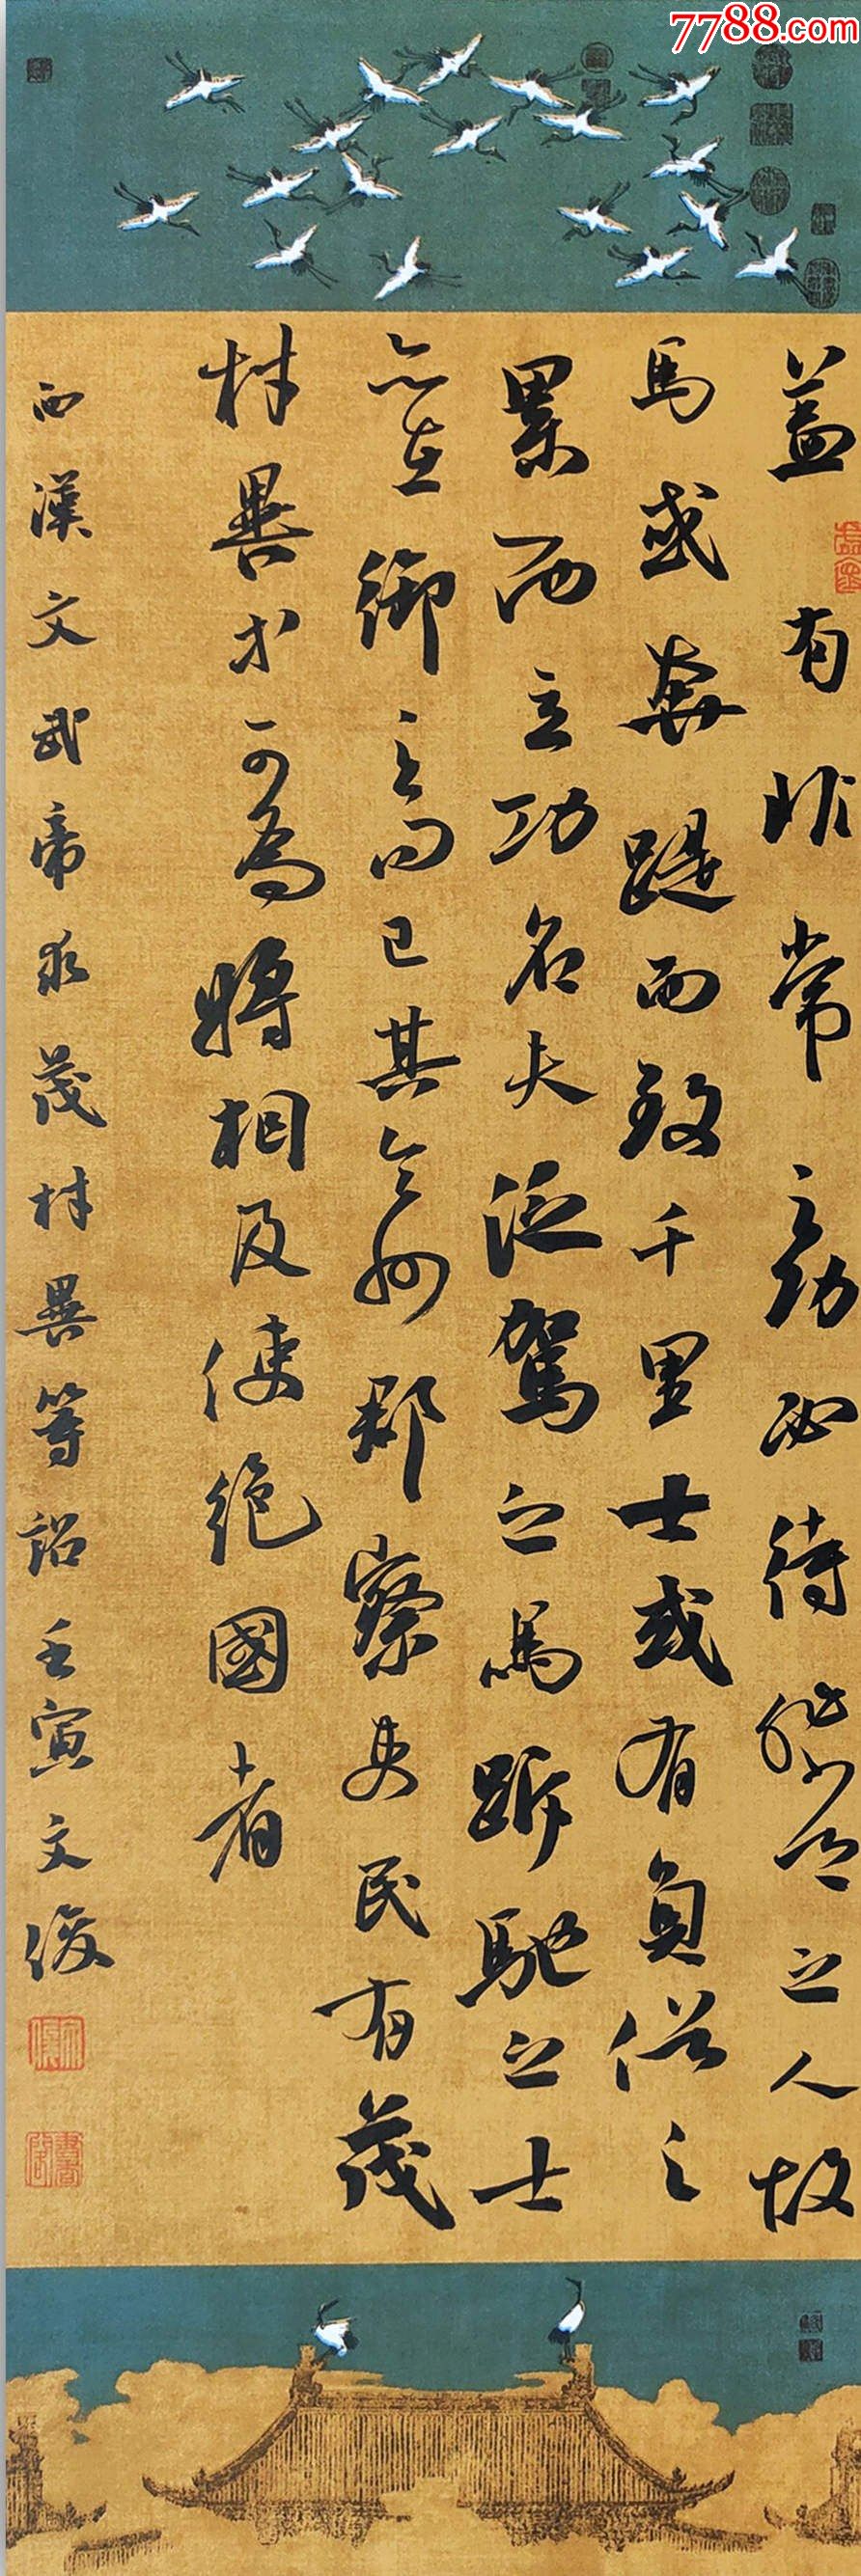 7788.com
盖有非常之功必待非常之人故
馬或奔踶而致千里士或有負俗之
累而立功名夫泛駕之馬跅馳之士
亦在御之而已其令州郡察吏民有茂
材異等可為將相及使絕國者
西漢文武帝求茂材異等詔壬寅文俊